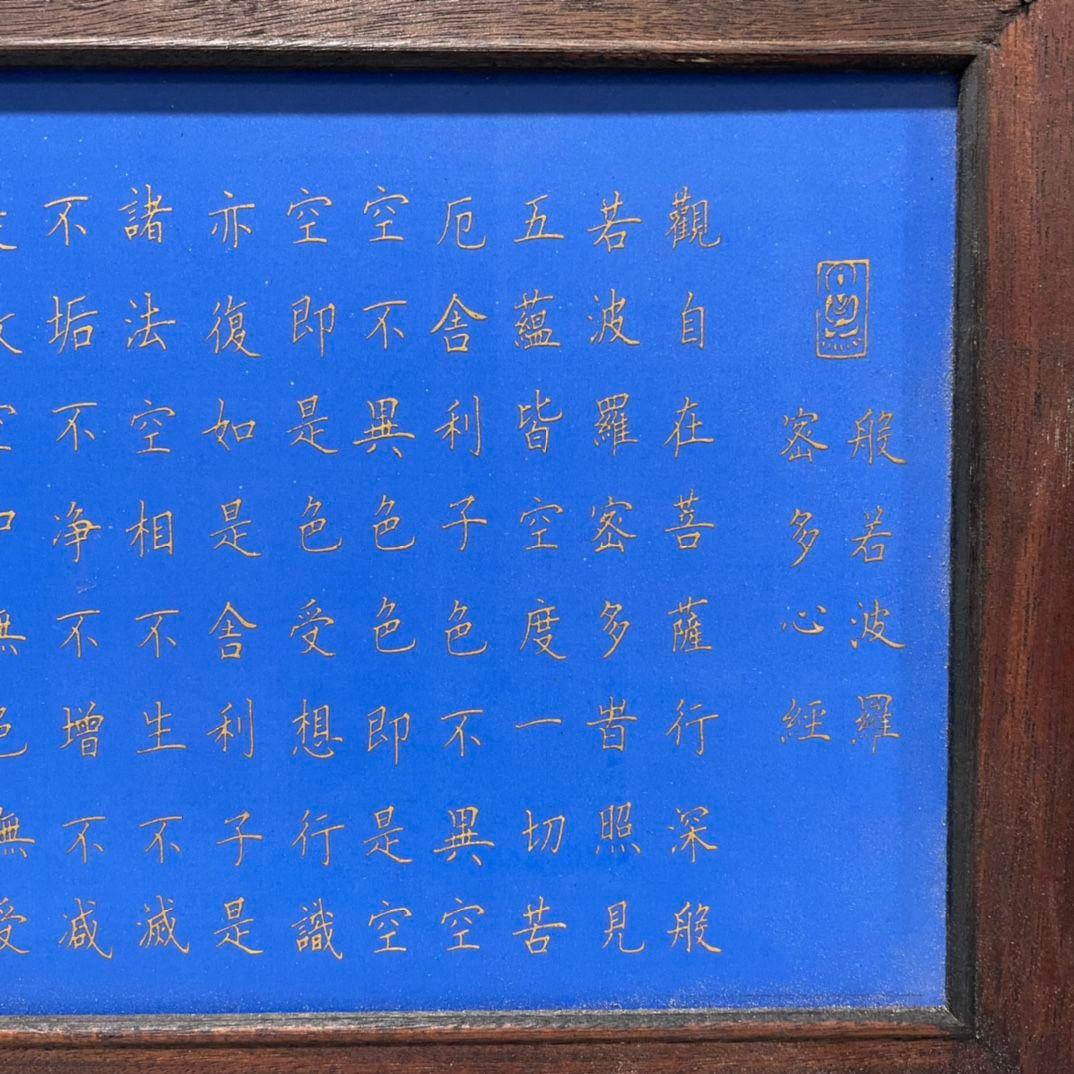 般若波羅
密多心經
觀自在菩薩行深般
若波羅密多旹照見
五蘊皆空度一切苦
厄舍利子色不異空
空不異色色即是空
空即是色受想行識
亦復如是舍利子是
諸法空相不生不滅
不垢不净不增不減
無色無受